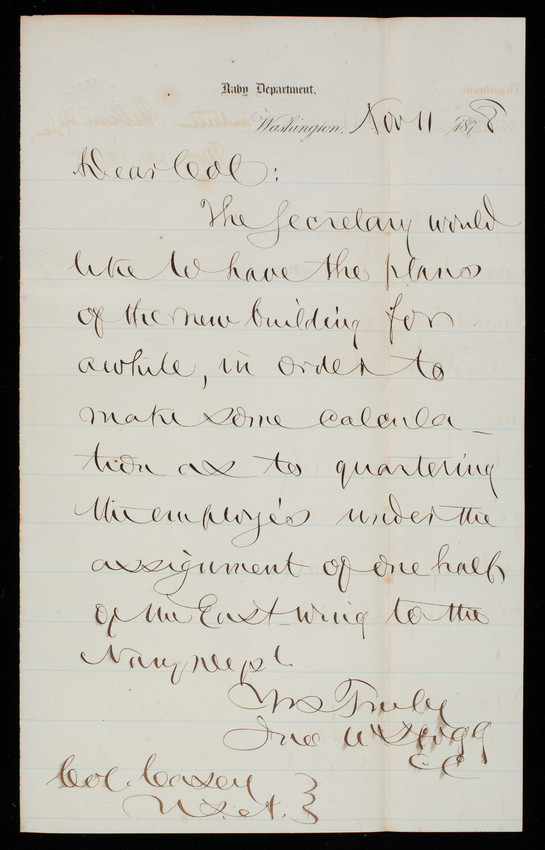 Navy Department,
Washington, Nov 11 1878
Dear Col:
The Secretary would
like to have the plans
of the new building for
awhile, in order to
make some calcula-
tion as to quartering
the employés under the
assignment of one half
of the East-wing to the
Navy Dept
Yrs Truly
Jno W Hogg
CC
Col. Casey
U.S.A.